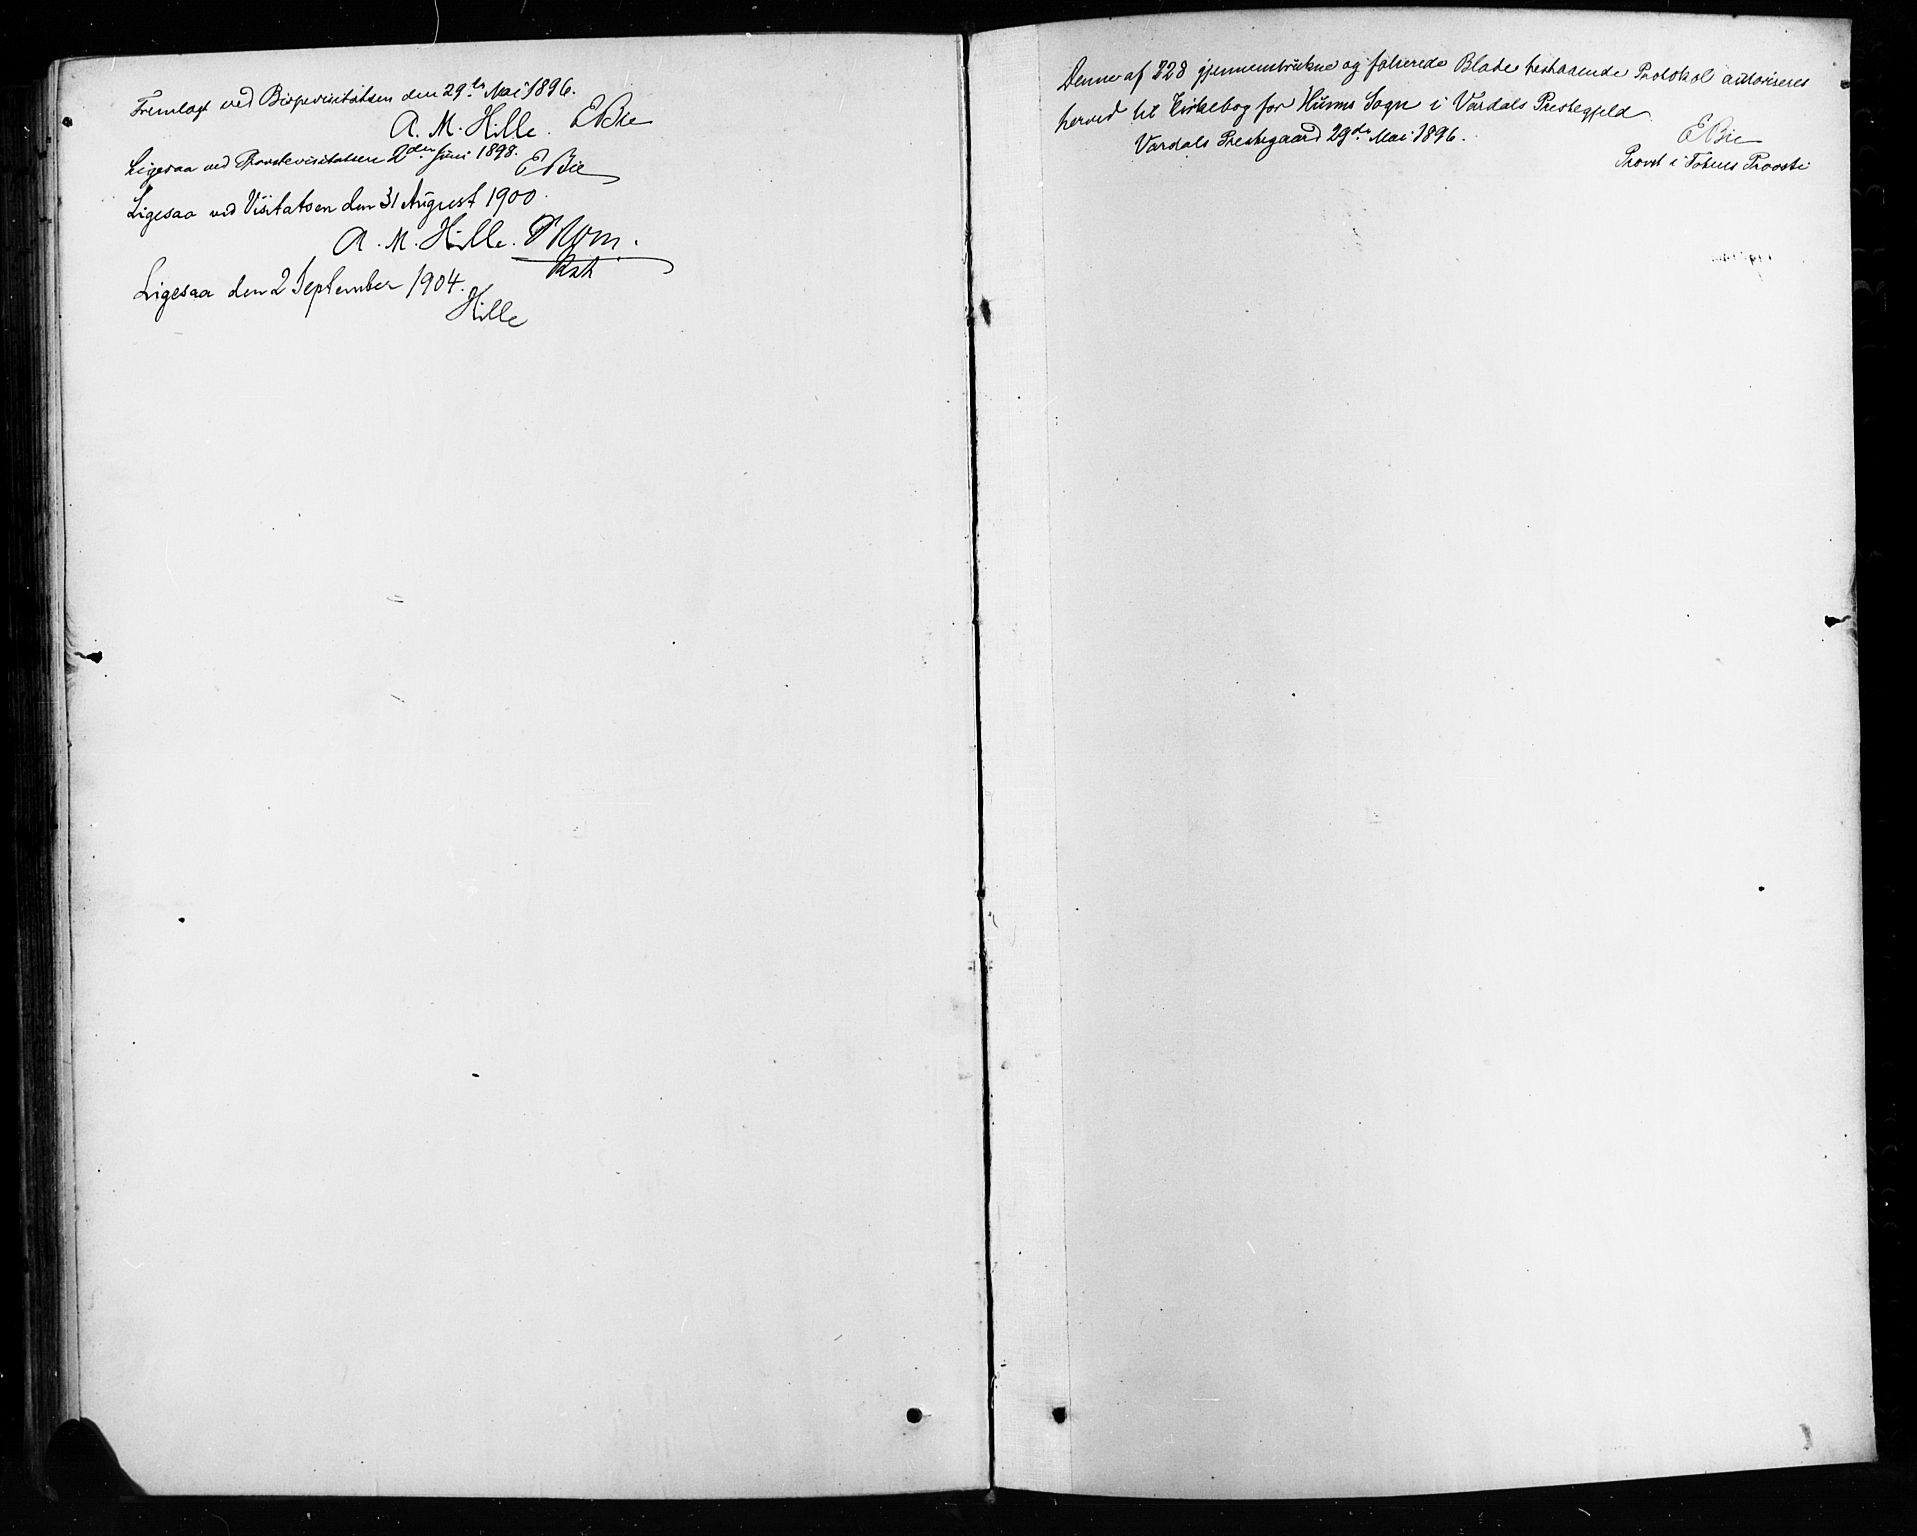 Fremlagt ved Bispevisitatsen den 29de Mai 1896.
A. M. Hille. E Bie
Ligesaa ved Provstevisitatsen 2den Juni 1898.
E Bie
Ligesaa ved Visitatsen den 31 August 1900.
A. M. Hille.
Ligesaa den 2 September 1904.
Hille
Denne af 228 gjennemtrukne og folierede Blade bestaaende Protokol autoriseres
herved til Kirkebog for Hunns Sogn i Vardals Prestegjeld
Vardals Prestegaard 29de Mai 1896.
E Bie
Provst i Totens Provsti